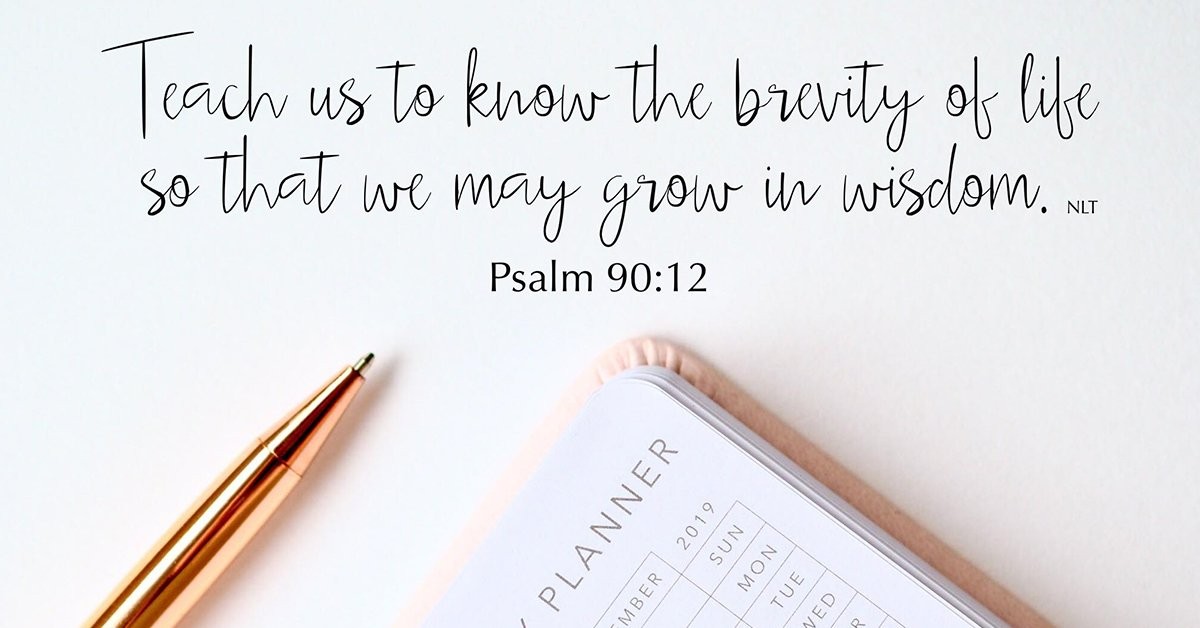 Teach us to know the brevity of life
so that we may grow in wisdom. NLT
Psalm 90:12
PLANNER
2019
SUN
MON
TUE